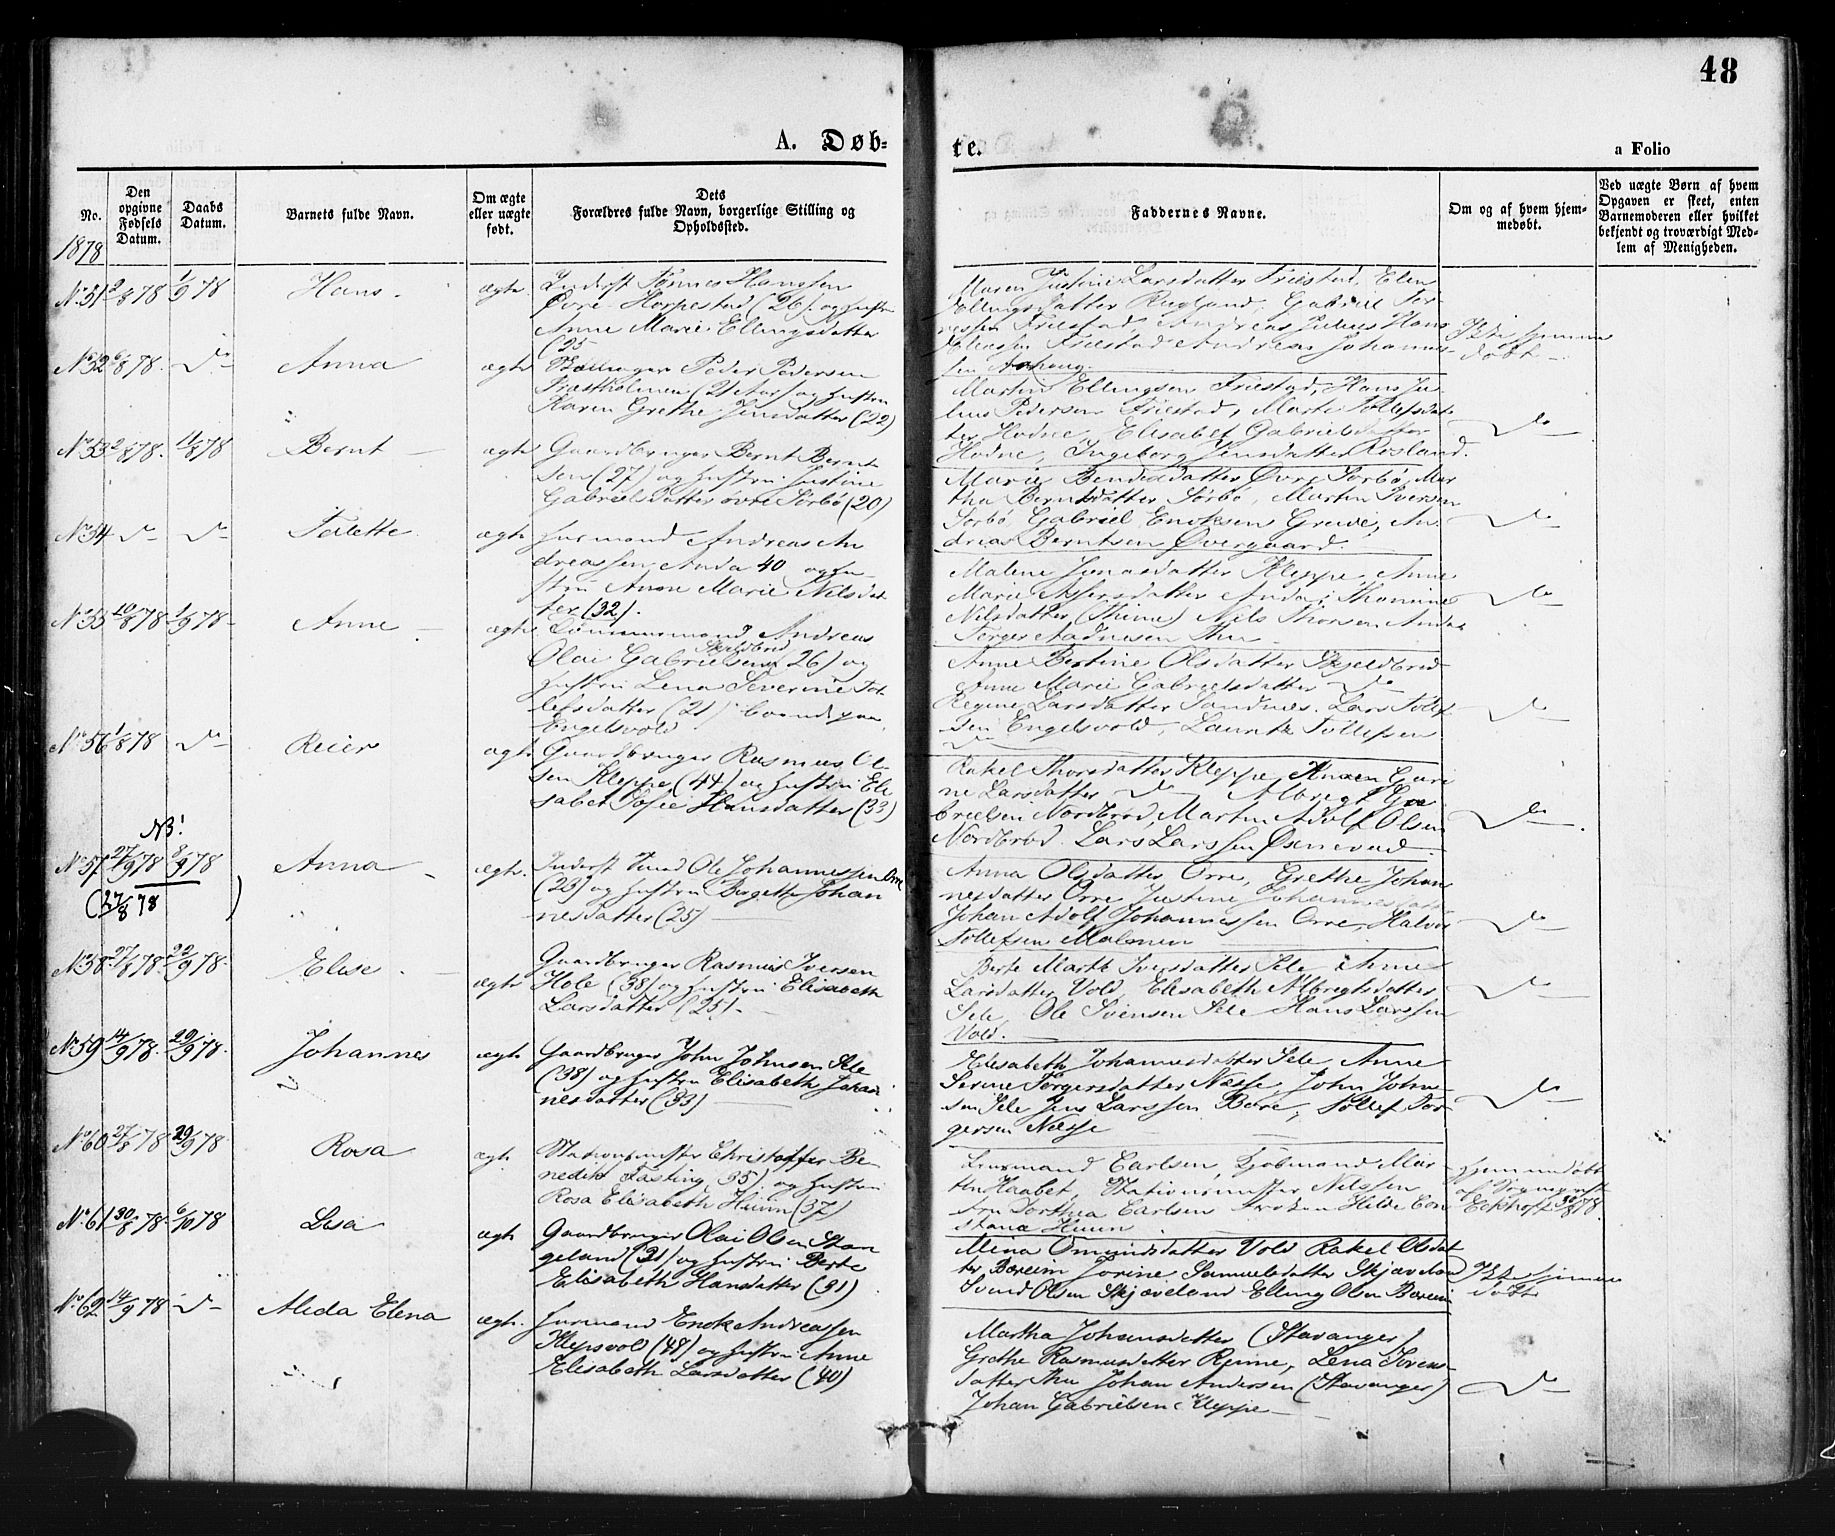 48
A. Døb-
te.
a Folio
No.
Den opgivne Fødsels Datum.
Daabs Datum.
Barnets fulde Navn.
Om ægte eller uægte født.
Dets Forældres fulde Navn, borgerlige Stilling og Opholdssted.
Faddernes Navne.
Om og af hvem hjem-
medøbt.
Ved uægte Børn af hvem
Opgaven er skeet, enten
Barnemoderen eller hvilket
bekjendt og troværdigt Med-
lem af Menigheden.
1878
No 51 2/8 78 1/9 78 Hans ægte Inderst Tønnes Hanssen
Øvre Horpestad (26). og Hustru
Anne Marie Ellingsdatter
(25
Maren Justine Larsdatter Friestad, Elen
Ellingsdatter Rugland, Gabriel Tor-
Friestad, Andreas Julius Hans
Friestad Andreas Johannes-
sen
Ikke hjemme
døbt
No 52 6/8 78. do Anna ægte Peder Pedersen
og Hustru
Karen Grethe Jensdatter (22)
Martin Ellingsen Friestad, Hans Ju-
lius Pedersen Friestad, Marte Tollefsdat
ter Hodne, Elisabet Gabrielsdatter
Hodne, Ingeborg Jensdatter Rosland.
do
No 53 2/8 78. 11/8 78 Bernt ægte Gaardbruger Bernt Bernt
sen (27) og Hustru Justine
Gabrielsdatter øvre Sørbø (20)
Marie Bendixdatter Øvre Sørbø, Mar
tha Berntsdatter Sørbø, Martin Iversen
Sørbø Gabriel Enoksen Grude, An
dreas Berntsen Øvergaard.
do
No 54 do do ægte Huusmand Andreas An
dreassen Anda 40 og Hu
stru Anne Marie Nilsdat
ter (32).
Malene Jonasdatter Kleppe, Anne
Marie Assersdatter Anda, Thomine
Nilsdatter (Thime) Nils Thorsen Anda
Torger Aadnesen Thu
do
No 55 10/8 78 1/9 78 Anne ægte Tømmermand Andreas
Olai Gabrielsen Skjeldbred (26) og
Hustru Lena Severine Tol
lefsdatter (21) boende paa
Engelsvold.
Anne Bertine Olsdatter Skjeldbred
Anne Marie Gabrielsdatter do
Regine Larsdatter Sandnes. Lars Tollef
sen Engelsvold, Laurits Tollefsen
do
do
No 56 1/8 78 do Reier ægte Gaardbruger Rasmus Ol
sen Kleppe (44) og Hustru Eli
sabet Sofie Hansdatter (33)
Rakel Thorsdatter Kleppe, Karen Gure
ne Larsdatter do Albregt Ga
brielsen Nordbrød, Martin Adolf Olsen
Nordbrød. Lars Larssen Øxnevad.
do
NB!
No 57 27/9 78 8/9 78 Anna ægte. Inderst Ole Johannessen Orre
(23) og Hustru Birgitte Johan
nesdatter (25)
(27/8 78)
Anna Olsdatter Orre, Grethe Johan
nesdatter Orre Justine Johannesdatter
Johan Adolf Johannessen Orre, Halvor
Tollefsen Malmen
do
No 58. 27/8 78. 22/9 78. Elise ægte Gaardbruger Rasmus Iversen
Hole (38) og Hustru Elisabeth
Larsdatter (25).
Berte Marthe Iversdatter Sele Anne
Larsdatter Vold Elisabeth Albregtsdatter
Sele, Ole Svensen Sele Hans Larssen
Vold.
do
No 59 14/9 78. 29/9 78. Johannes ægte Gaardbruger John Johnsen Sele
(38) og Hustru Elisabeth Johan
nesdatter (33)
Elisabeth Johannesdatter Sele, Anne
Serine Torgersdatter Næsse, John John-
sen Sele Jens Larssen Bore, Tollef Tor
gersen Næsse
do
No 60 27/8 78 29/9 78 Rosa ægte Stationsmester Christoffer Be-
nedikt Fasting (35) og Hustru
Rosa Elisabeth Huun (37)
Carlsen, Kjøbmand Mar
tin Haabet, Stationsmester Nilssen
Fru Dorthea Carlsen Frøken Hilde Con
stance Huun
Hjemmedøbt
af
Eckhoff 30/8 78.
No 61 30/8 78 6/10 78 Lisa ægte Gaardbruger Olai Olsen Stan
geland (31) og Hustru Berte
Elisabeth Hansdatter (31)
Mina Omundsdatter Vold Rakel Olsdat
ter Boreim Jorine Samuelsdatter Skjæveland
Svend Olsen Skjæveland Elling Olsen Boreim
Ikke hjemme
døbt
No 62 14/9 78 do Alida Elena ægte. Huusmand Enok Andreassen
Klepsvold (48) og Hustru Anne
Elisabeth Larsdatter (40)
Martha Johansdatter (Stavanger)
Grethe Rasmusdatter Reime, Lena Sørens-
datter Thu Johan Andersen (Stavanger)
Johan Gabrielsen Kleppe
do